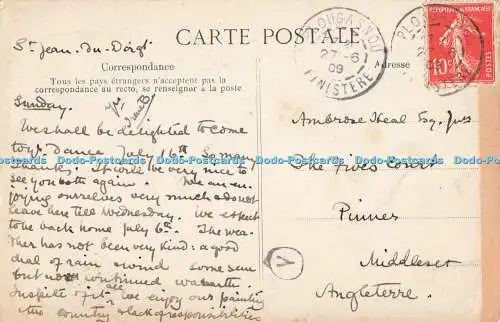 St Jean-du-Doigt
CARTE POSTALE
Correspondance
Tous les pays étrangers n'acceptent pas la
correspondance au recto, se renseigner à la poste
Adresse
PLOUGASNOU
27-6
09
FINISTÈRE
REPUBLIQUE FRANÇAISE
10c
POSTES
Sunday.
We shall be delighted to come
to yr. Dance July 16th So many
thanks. It will be very nice to
see you both again. We are en-
joying ourselves very much & do not
leave here till Wednesday. We expect
to be back home July 6th. The wea-
ther has not been very kind: a good
deal of rain & wind some sun
but no continued warmth.
In spite of it all we enjoy our painting
the country & lack of responsibilities
Ambrose Heal Esq. Junr
The Fives Court
Pinner
Middlesex
Angleterre.
V
Dodo-Postcards Dodo-Postcards Dodo-Postcards Dodo-Postcards Dodo-Postcards Dodo-Postcards